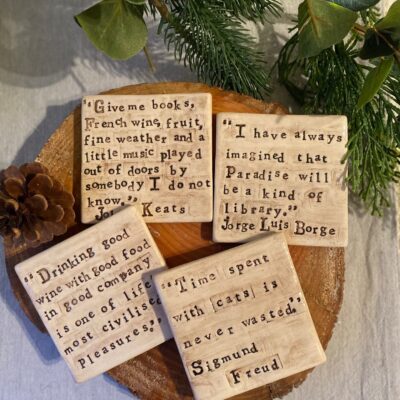 "Give me books,
French wine, fruit,
fine weather and a
little music played
out of doors by
somebody I do not
know."
John Keats
"I have always
imagined that
Paradise will
be a kind of
library."
Jorge Luis Borge
"Drinking good
wine with good food
in good company
is one of life
most civilised
pleasures."
"Time spent
with cats is
never wasted",
Sigmund
Freud